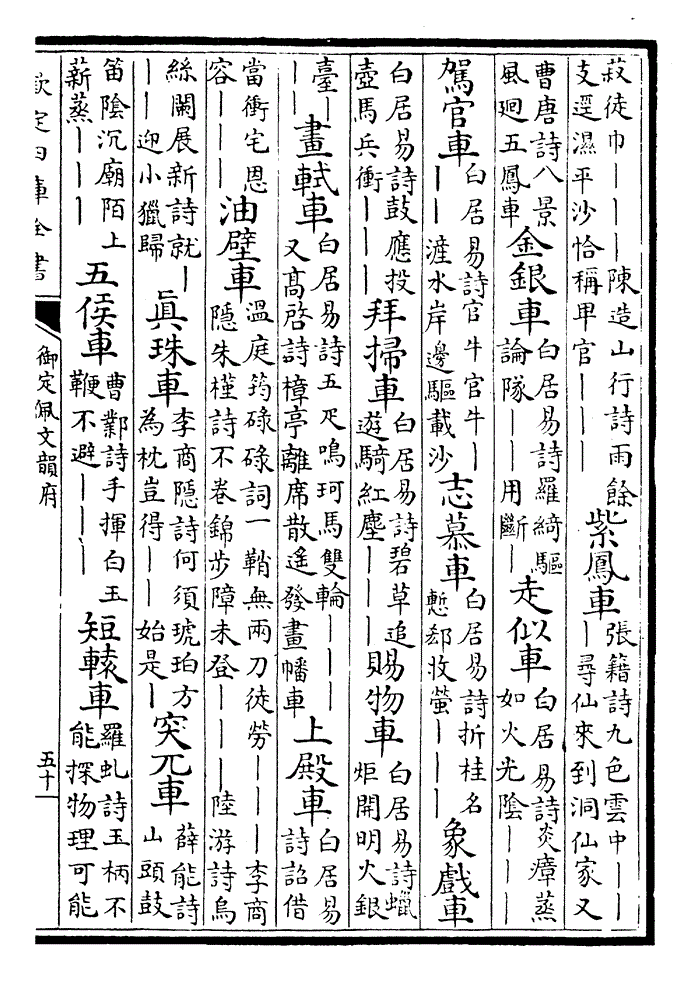 菽徒巾｜｜｜陳造山行詩雨餘支逕濕平沙恰稱甲官｜｜｜紫鳳車張籍詩九色雲中｜｜｜尋仙來到洞仙家又
曹唐詩八景風廻五鳳車金銀車白居易詩羅綺驅論隊｜｜｜用斷｜走似車白居易詩炎瘴蒸如火光陰｜｜｜
駕官車白居易詩官牛官牛｜｜｜滻水岸邊驅載沙志慕車白居易詩折桂名慙郄牧螢｜｜｜象戲車
白居易詩鼓應投壺馬兵衝｜｜｜拜掃車白居易詩碧草追遊騎紅塵｜｜｜賜物車白居易詩蠟炬開明火銀
臺｜｜｜畫軾車白居易詩五疋鳴珂馬雙輪｜｜｜又高啓詩樟亭離席散遙發畫幡車上殿車白居易詩詔借
當衝宅恩容｜｜｜油壁車溫庭筠碌碌詞一鞘無兩刀徒勞｜｜｜李商隱朱槿詩不卷錦步障未登｜｜｜陸游詩烏
絲闌展新詩就｜｜｜迎小獵歸眞珠車李商隱詩何須琥珀方為枕豈得｜｜｜始是｜突兀車薛能詩山頭鼓
笛陰沉廟陌上薪蒸｜｜｜五侯車曹鄴詩手揮白玉鞭不避｜｜｜短轅車羅虬詩玉柄不能探物理可能
欽定四庫全書
御定佩文韻府
五十